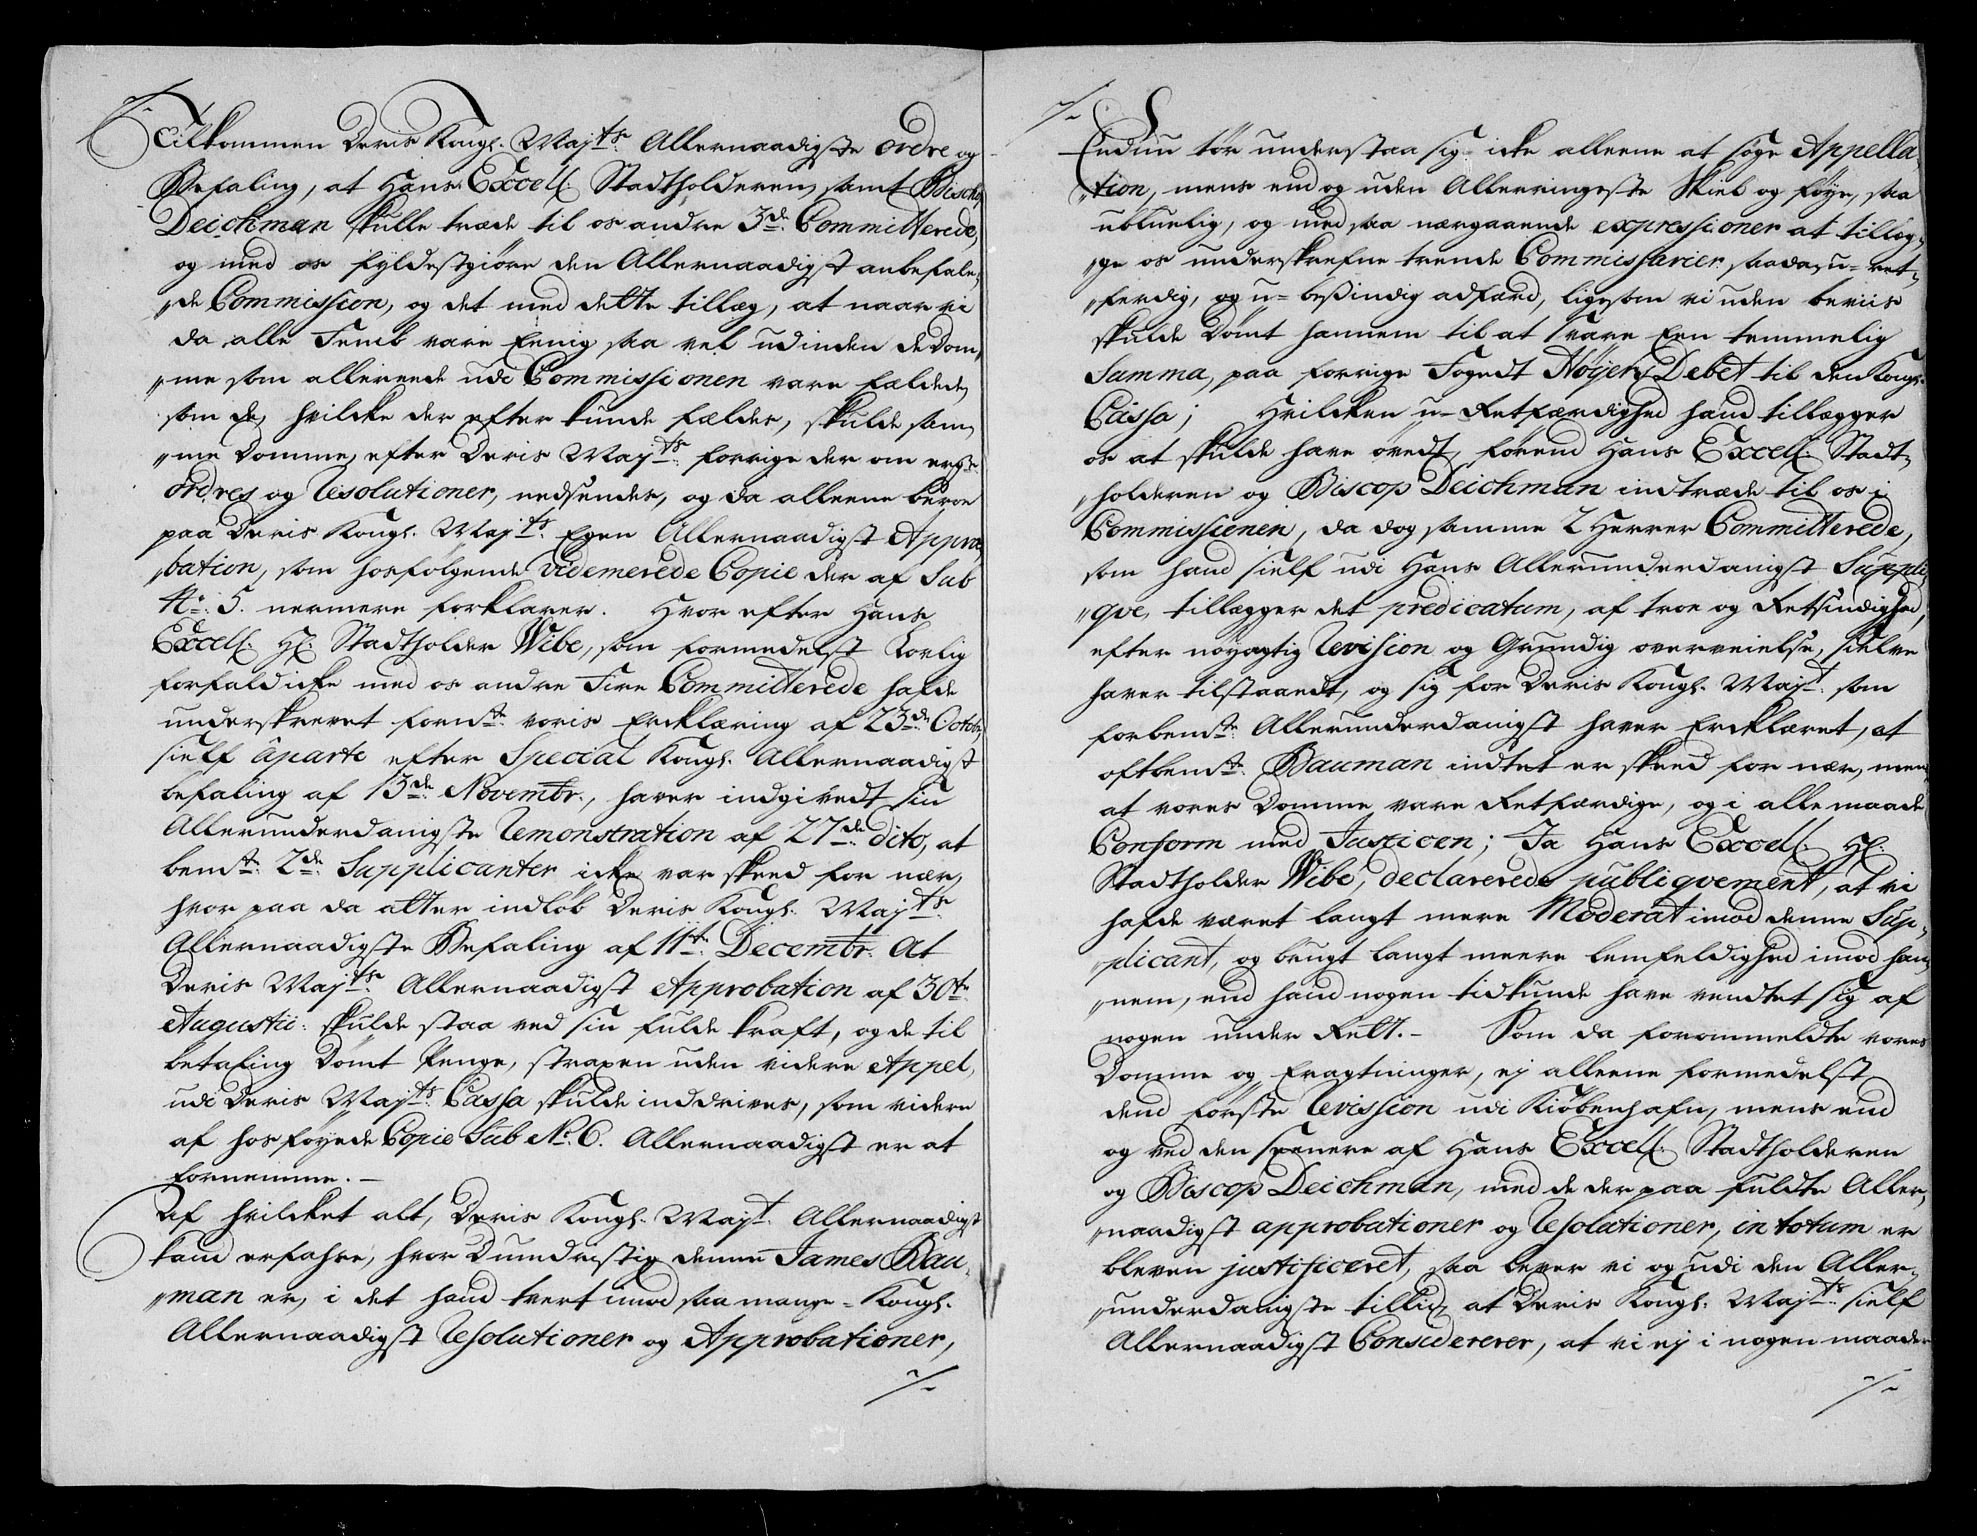 Tilkommen Deris Kongl. Maj:ts Allernaadigste ordre og
Befaling, at Hans Excell: Stadtholderen, samt Biscop
Deichman skulle træde til os andre 3de Committerede,
og med os fyldestgiøre den Allernaadigst anbefale,
„de Commission, og det med dette tillæg, at naar vi
da alle Femb vare Eenig saa vel udinden de Dom,
„me som allereede udi Commissionen vare fældede,
som de, hvilcke der efter kunde fældes, skulde sam,
„me Domme, efter Deris Maj:ts forrige der om
ordres og Resolutioner, nedsendes, og da alleene beroe
paa Deris Kongl. Maj:ts Egen Allernaadigst Appro
„bation, som hosfølgende Videmerede Copie der af Sub
N: 5. nermere forklarer. Hvor efter Hans
Excell: H: Stadtholder Wibe, som formedelst Lovlig
forfald icke med os andre Fire Committerede hafde
underskrevet fornte voris Ercklæring af 23de Octobr
sielf aparte efter Special Kongl. Allernaadigst
befaling af 13de Novembr., haver indgivedt sin
Allerunderdanigste Remonstration af 27de dito, at
bemte 2de Supplicanter icke var skeed for nær,
hvor paa da atter indløb Deris Kongl. Maj:ts
Allernaadigste Befaling af 11te Decembr. At
Deris Maj:ts Allernaadigst Approbation af 30te
Augustii: skulde staa ved sin fulde kraft, og de til
betaling Dømt Penge, straxen uden videre Appel,
udi Deris Maj:ts Cassa skulde inddrives, som videre
af hosføyede Copie Sub N: 6. Allernaadigst er at
fornemme. –
Af hvilcket alt, Deris Kongl. Maj:t Allernaadigst
kand erfahre, hvor Dumdristig denne James Bau-
„man er, i det hand tvert imod saa mange Kongl.
Allernaadigst Resolutioner og Approbationer,
Endnu tør understaa sig icke alleene at søge Appella,
„tion, mens end og uden Allerringeste Skiel og føye, saa
ubluelig, og med saa nærgaaende expressioner at tillæg,
„ge os underskrefne trende Commissarier saadan u-ret,
„ferdig, og u-beßindig adfærd, ligesom vi uden beviis
skulde Dømt hannem til at svare Een temmelig
Summa, paa forrige Fogedt Höyers Debet til den Kongl.
Cassa; Hvilcken u-Retfærdighed hand tillægger
os at skulde have øvedt, førend Hans Excell: Stadt,
„holderen og Biscop Deichman indtræde til os i
Commissionen, da dog samme 2 Herrer Committerede,
som hand sielf udi Hans Allerunderdanigst Suppli
„qve, tillægger det predicatum, af troe og Retsindighed,
efter nöyagtig Revision og Grundig overveielse, sielve
haver tilstaaedt, og sig for Deris Kongl. Maj:t som
forbemte Allerunderdanigst haver Ercklæret, at
oftbemte Bauman indtet er skeed for nær, men
at vores Domme vare Retfærdige, og i alle maade
Conform med Justicen; Ja Hans Excell: H:
Stadtholder Wibe, declarerede publiqvement, at vi
hafde været langt mere Moderat imod denne Sup-
„plicant, og brugt langt meere lemfeldighed imod han,
„nem, end hand nogen tid kunde have ventet sig af
nogen under Rett. – Som da forommeldte vores
Domme og Eragtninger, ej alleene formedelst
dend förste Revission udi Kiöbenhafn, mens end
og ved den seenere af Hans Excell: Stadtholderen
og Biscop Deichman, med de der paa fuldte Aller,
„naadigst approbationer og Resolutioner, in totum er
bleven justificeret, saa lever vi og udi den Aller-
„underdanigste tillid, at Deris Kongl. Maj:ts sielf
Allernaadigst Considererer, at vi ej i nogen maader